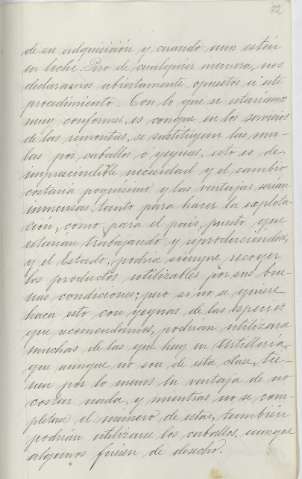 72
de su adquisición y cuando aun estén
en leche. Pero de cualquier manera, nos
declaramos abiertamente opuestos á este
procedimiento. Con lo que si estaríamos
muy conformes, es conque en los servicios
de las remontas, se sustituyan las mu-
las por caballos ó yeguas, esto es de
imprescindible necesidad y el cambio
costaría poquísimo y las ventajas serían
inmensas, tanto para hacer la explota-
ción, como para el país, puesto que
estarían trabajando y reproduciendo,
y el Estado, podría siempre recoger
los productos utilizables por sus bue-
nas condiciones; pero si no se quiere
hacer esto con yeguas de las especies
que recomendamos, podrían utilizarse
muchas de las que hay en Artillería,
que aunque no son de esta clase, tie-
nen por lo menos la ventaja de no
costar nada, y mientras no se com-
pletara el número de estas, también
podrían utilizarse los caballos, aunque
algunos fuesen de desecho.